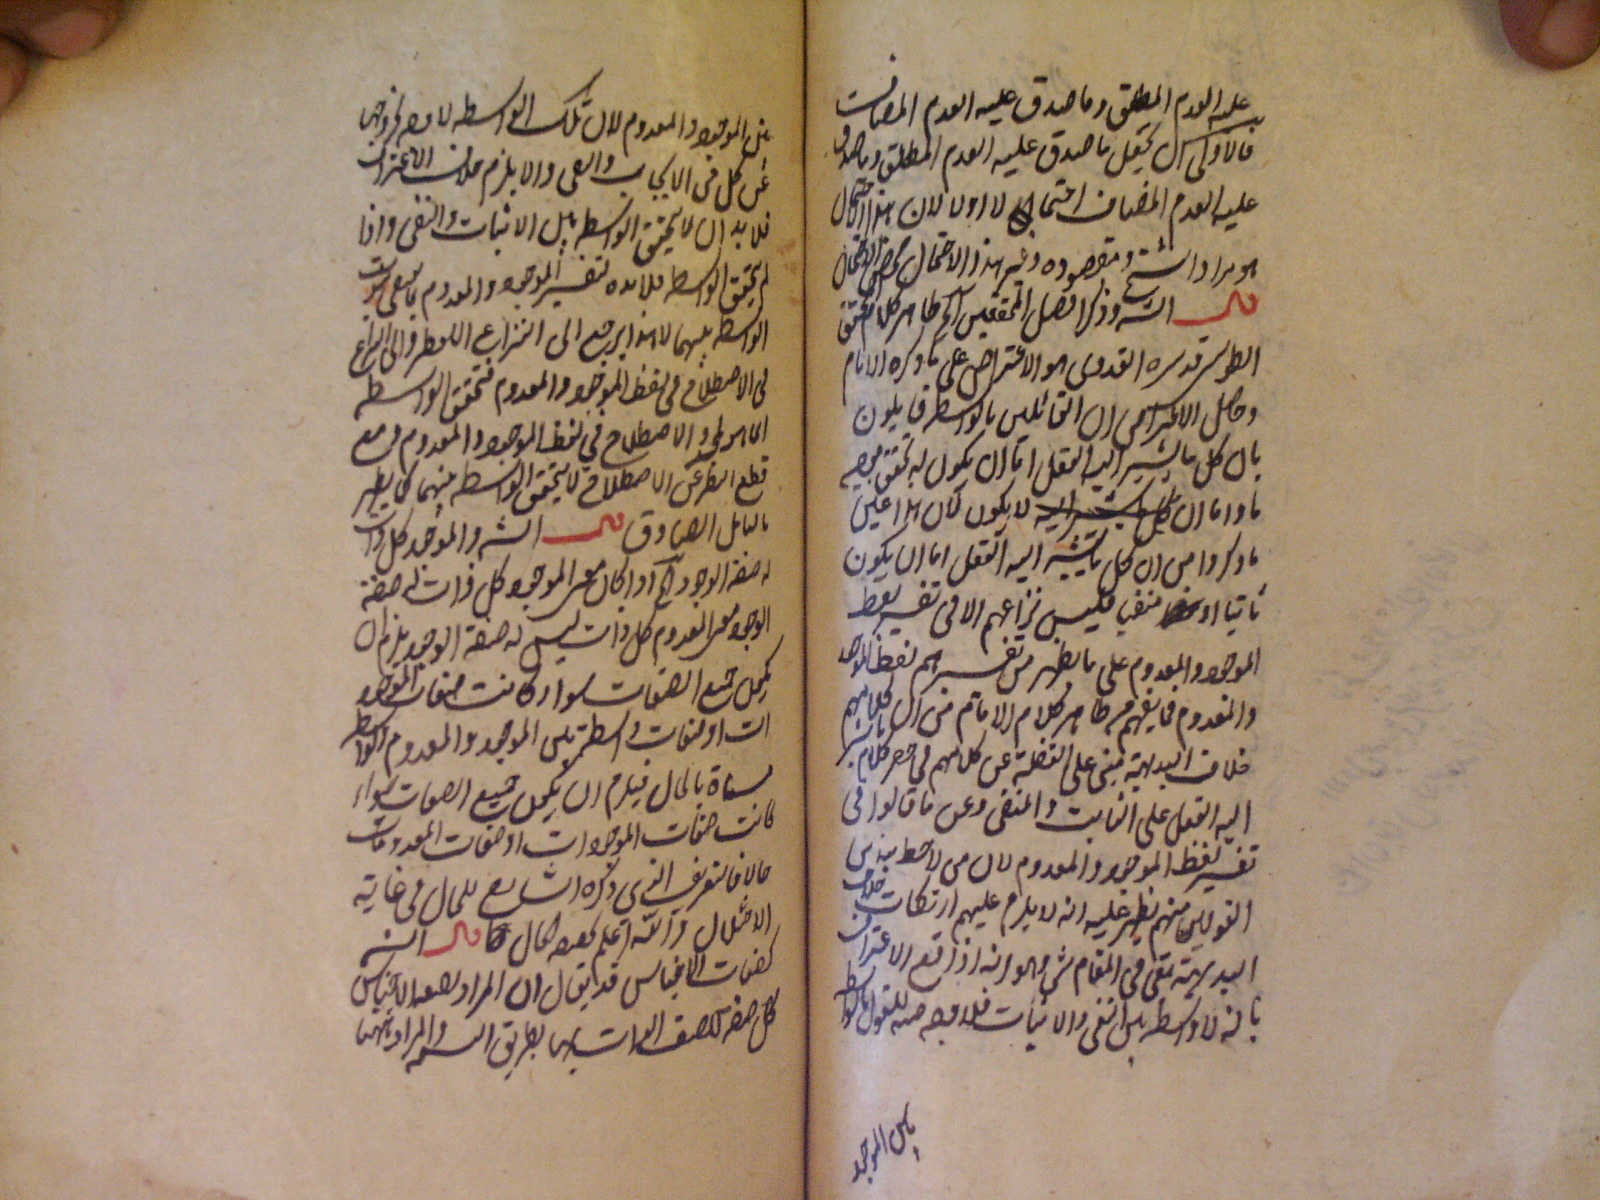 عليه العدم المطلق وما صدق عليه العدم المضاف
فالاولى ان يجعل ما صدق عليه العدم المطلق وما صدق
عليه العدم المضاف احتمالا لا اولا لان هذا الاحتمال
هو مراد الش ومقصوده وغير هذه الاحتمال
قال الش وذكر افضل المحققين آه ظاهر كلام المحقق
الطوسى قدس سره القدوسى هو الاعتراض على ما ذكره الامام
وحاصل الاعتراض ان القائلين بالواسطة قايلون
بان كل ما يشير اليه العقل اما ان يكون له تحقق
ما واما ان لا يكون
ما ذكروا من ان كل ما يشير اليه العقل اما ان يكون
ثابتا او منفيا فليس نزاعهم الا فى تفسير لفظ
الموجود والمعدوم على ما يظهر من تفسيرهم لفظ الموجود
والمعدوم فما يفهم من ظاهر كلام الامام من ان كلامهم
خلاف البديهة مبنى على الغفلة عن كلامهم فى حصر كلام ما يشير
اليه العقل على الثابت والمنفى وعن ما قالوا فى
تفسير لفظ الموجود والمعدوم لان من لاحظ هذين
القولين منهم يظهر عليه انه لا يلزم عليهم ارتكاب خلاف
البديهة بقى فى المقام شئ وهو انه اذا وقع الاعتراف
بانه لا واسطة بين النفى والاثبات فلا وجه للقول بالواسطة
بين الموجود
بين الموجود والمعدوم لان تلك الواسطة لا وجه لخروجها
عن كل من الايجاب والنفى والا يلزم خلاف الاعتراف
فلا بد ان لا يتحقق الواسطة بين الاثبات والنفى واذا
لم يتحقق الواسطة فلا فائدة لتفسير الموجود والمعدوم
الواسطة بينهما لان هذا يرجع الى النزاع اللفظى والى النزاع
فى الاصطلاح فى لفظ الموجود والمعدوم فتحقق الواسطة
انما هو الاصطلاح فى لفظ الموجود والمعدوم ومع
قطع النظر عن الاصطلاح لا يتحقق الواسطة بينهما كما يظهر
بالتامل الصادق قال الش والموجود كل ذات
له صفة الوجود آه اذا كان معنى الموجود كل ذات له صفة
الوجود ومعنى المعدوم كل ذات ليس له صفة الوجود يلزم ان
يكون جميع الصفات سواء كانت صفات الموجود
ات او صفات واسطة بين الموجود والمعدوم والواسطة
مسماة بالحال فيلزم ان يكون جميع الصفات سواء
كانت صفات الموجودات او صفات المعدومات
حالا فالتعريف الذى ذكره الشارح للحال فى غاية
الاختلال والله اعلم بحقيقة الحال قال الش
كصفات الاجناس قد يقال ان المراد بصفة الاجناس
كل صفة والمراد منها